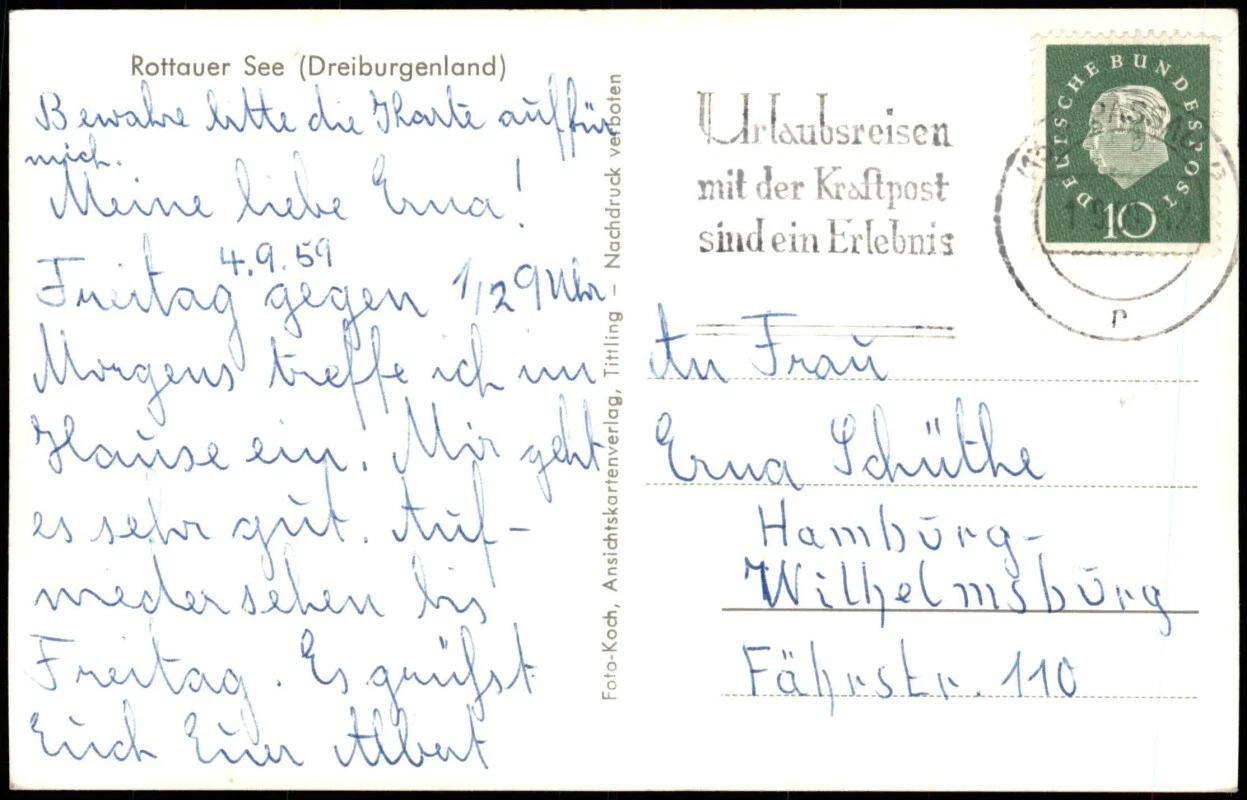 Rottauer See (Dreiburgenland)
Bewahre bitte die Karte auf für
mich.
Meine liebe Erna!
4.9.59
Freitag gegen 1/2 9 Uhr
Morgens treffe ich im
Hause ein. Mir geht
es sehr gut. Auf-
wiedersehen bis
Freitag. Es grüßt
Euch Euer Albert
Foto-Koch, Ansichtskartenverlag, Tittling – Nachdruck verboten
Urlaubsreisen
mit der Kraftpost
sind ein Erlebnis
DEUTSCHE BUNDESPOST
10
An Frau
Erna Schüthe
Hamburg-
Wilhelmsburg
Fährstr. 110